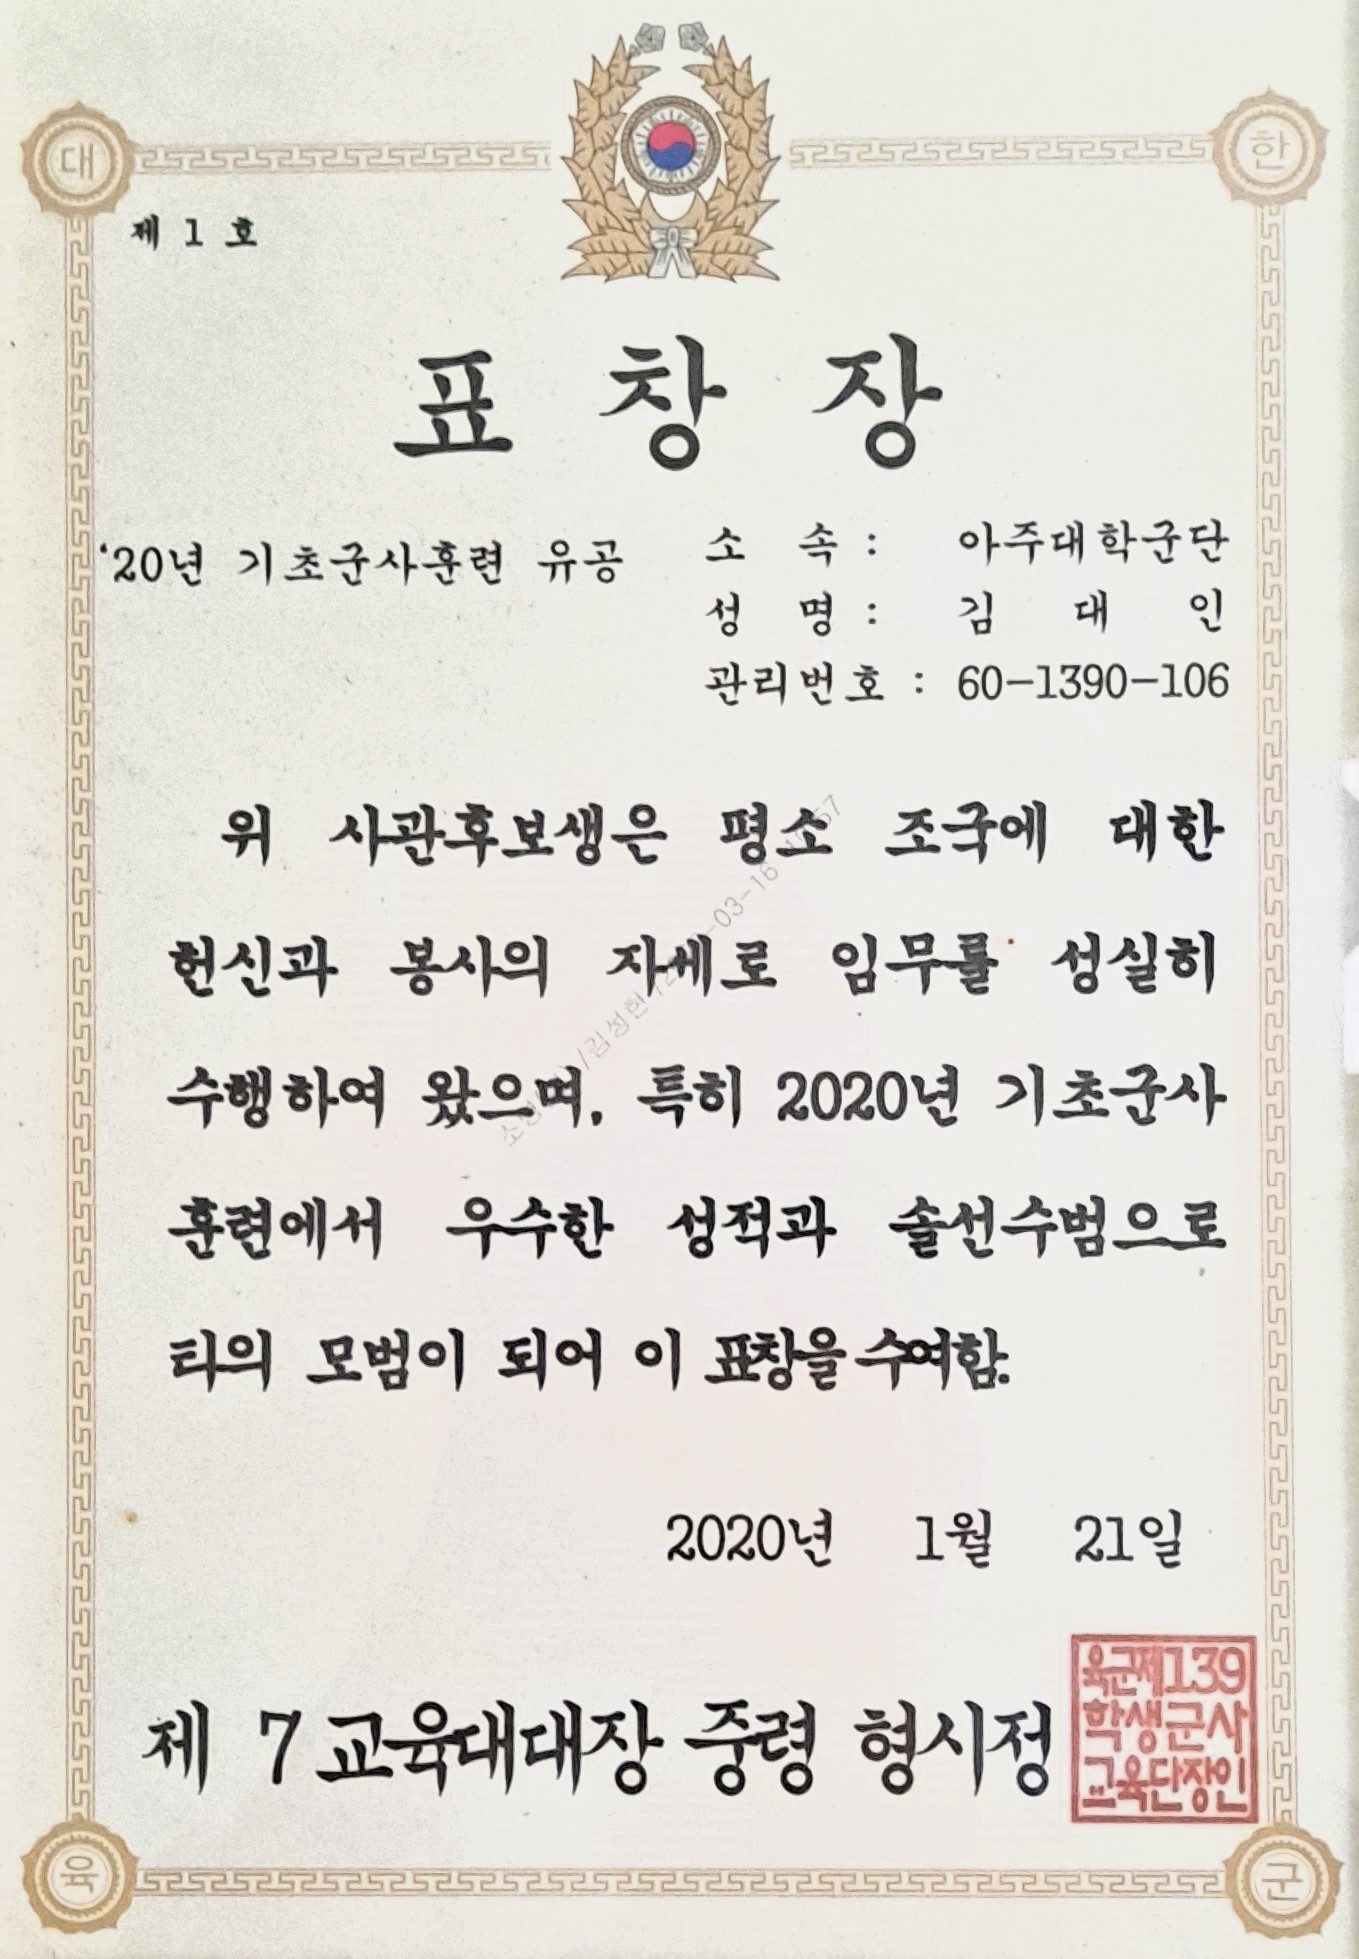 대 한
제 1 호
표 창 장
'20년 기초군사훈련 유공
소 속 : 아주대학군단
성 명 : 김 대 인
관리번호 : 60-1390-106
위 사관후보생은 평소 조국에 대한
헌신과 봉사의 자세로 임무를 성실히
수행하여 왔으며, 특히 2020년 기초군사
훈련에서 우수한 성적과 솔선수범으로
타의 모범이 되어 이 표창을 수여함.
/김성현
-03-16
2020년 1월 21일
제 7교육대대장 중령 형시정
육군제139
학생군사
교육단장인
육 군